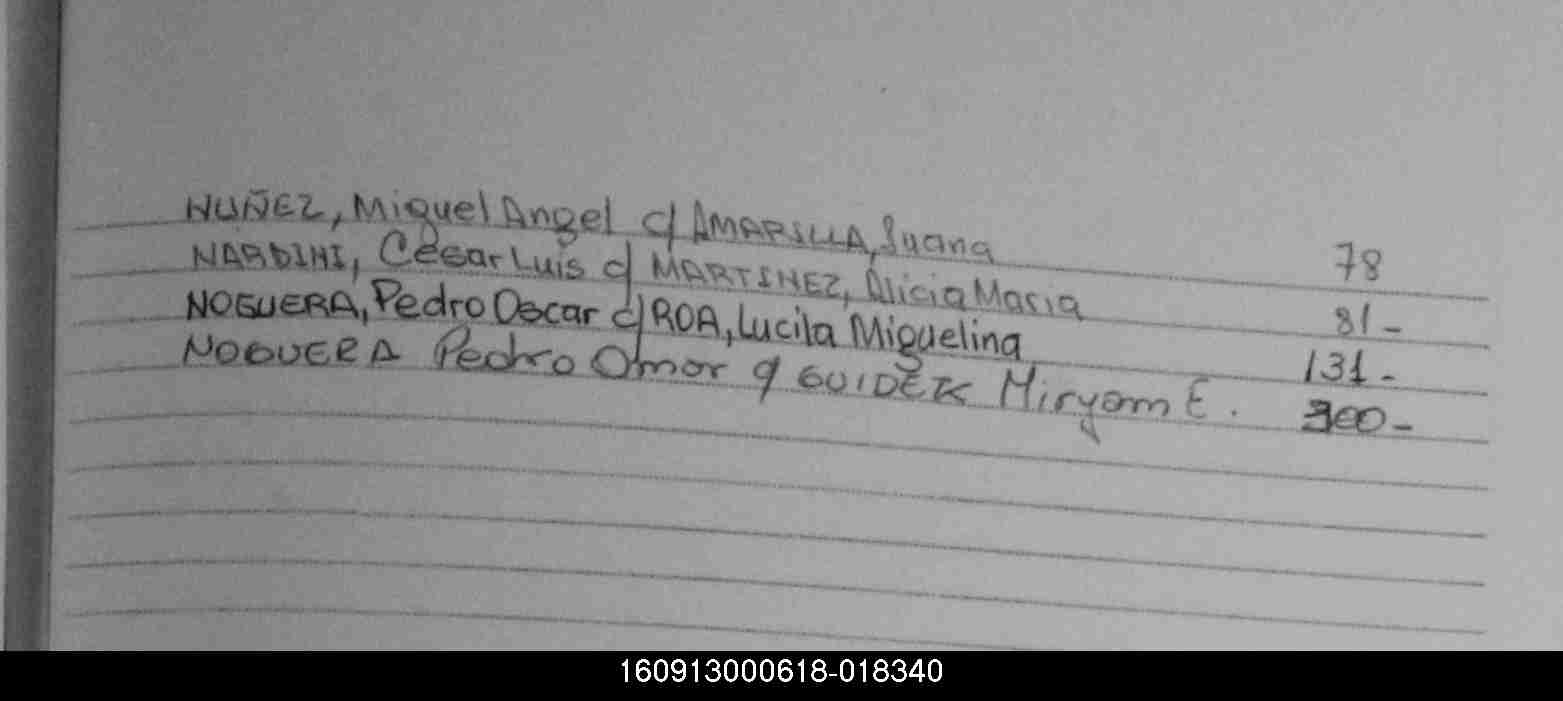 NUÑEZ, Miguel Angel c/ AMARILLA, Juana 78
NARDINI, César Luis c/ MARTINEZ, Alicia María 81-
NOGUERA, Pedro Oscar c/ ROA, Lucila Miguelina 131-
NOGUERA Pedro Omar c/ GUIDEK Miryam E. 300-
160913000618-018340